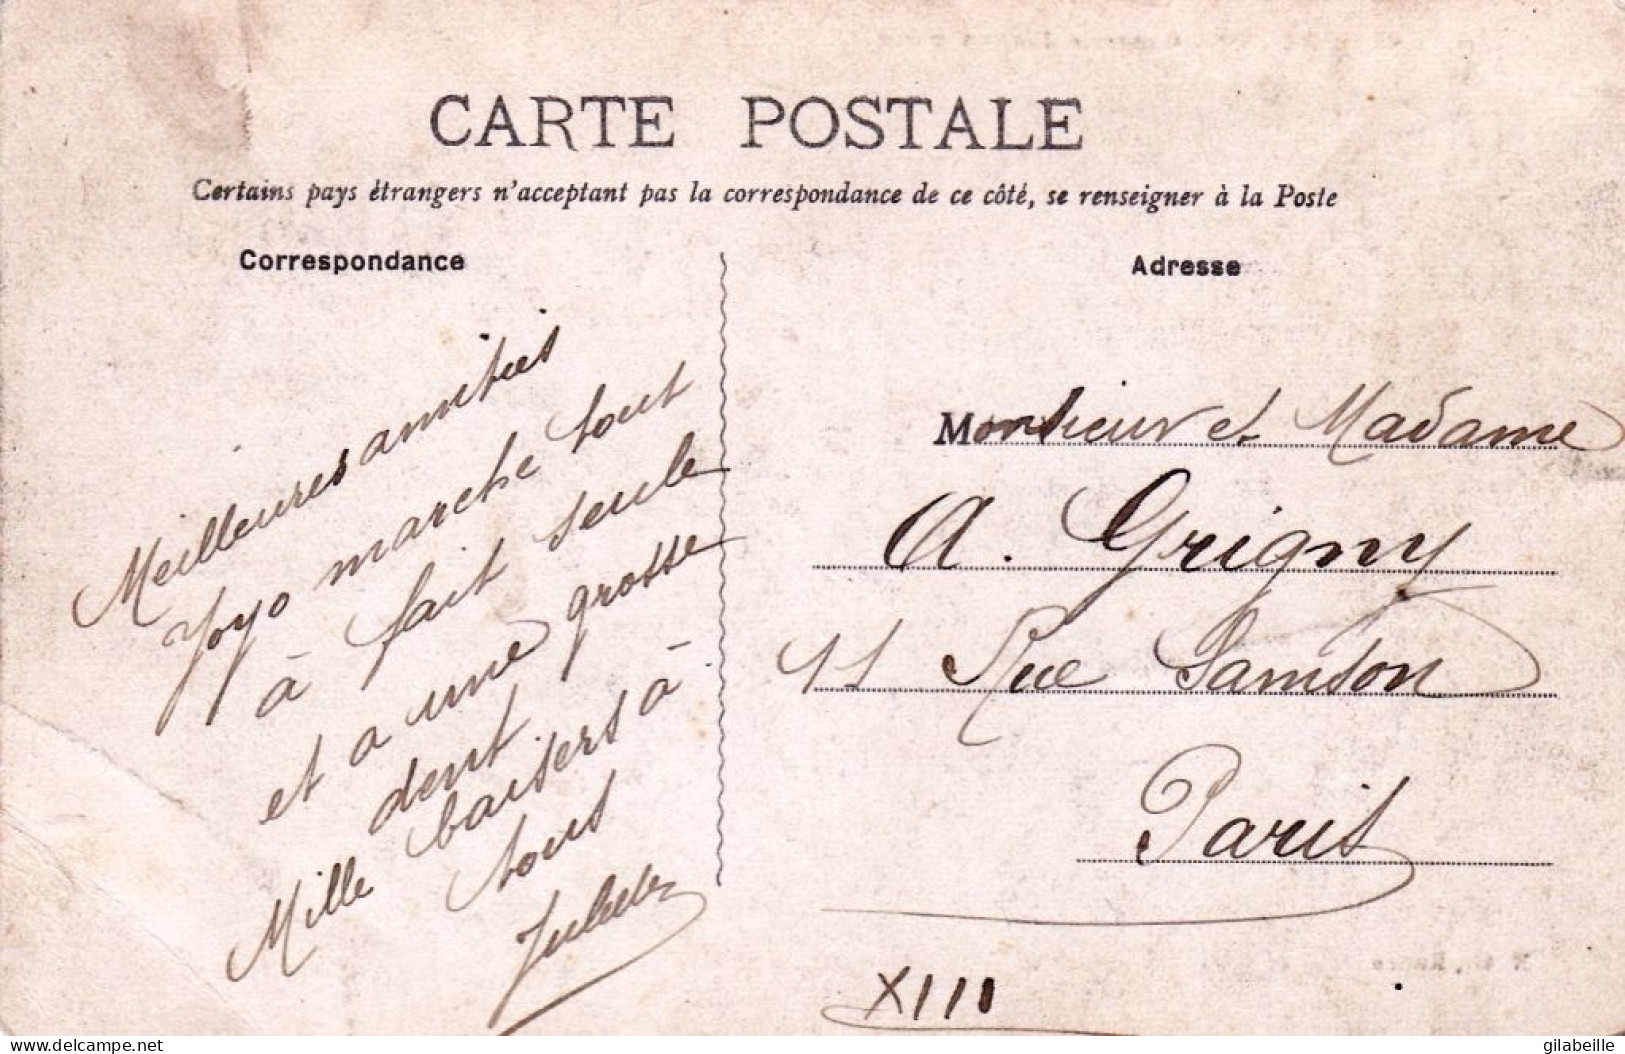 CARTE POSTALE
Certains pays étrangers n'acceptant pas la correspondance de ce côté, se renseigner à la Poste
Correspondance
Meilleures amitiés
Yoyo marche tout
à fait seule
et a une grosse
dent
Mille baisers à
tous
Juliette
Adresse
Monsieur et Madame
A. Grigny
11 Rue Samson
Paris
XIII
delcampe.net
gilabeille